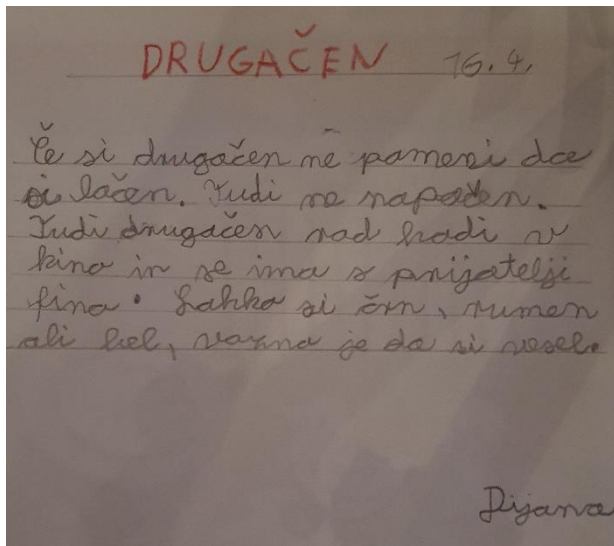 DRUGAČEN 16.4.
Če si drugačen ne pomeni da
si lačen. Tudi ne napačen.
Tudi drugačen rad hodi v
kino in se ima s prijatelji
fino. Lahko si črn, rumen
ali bel, važno je da si vesel.
Dijana